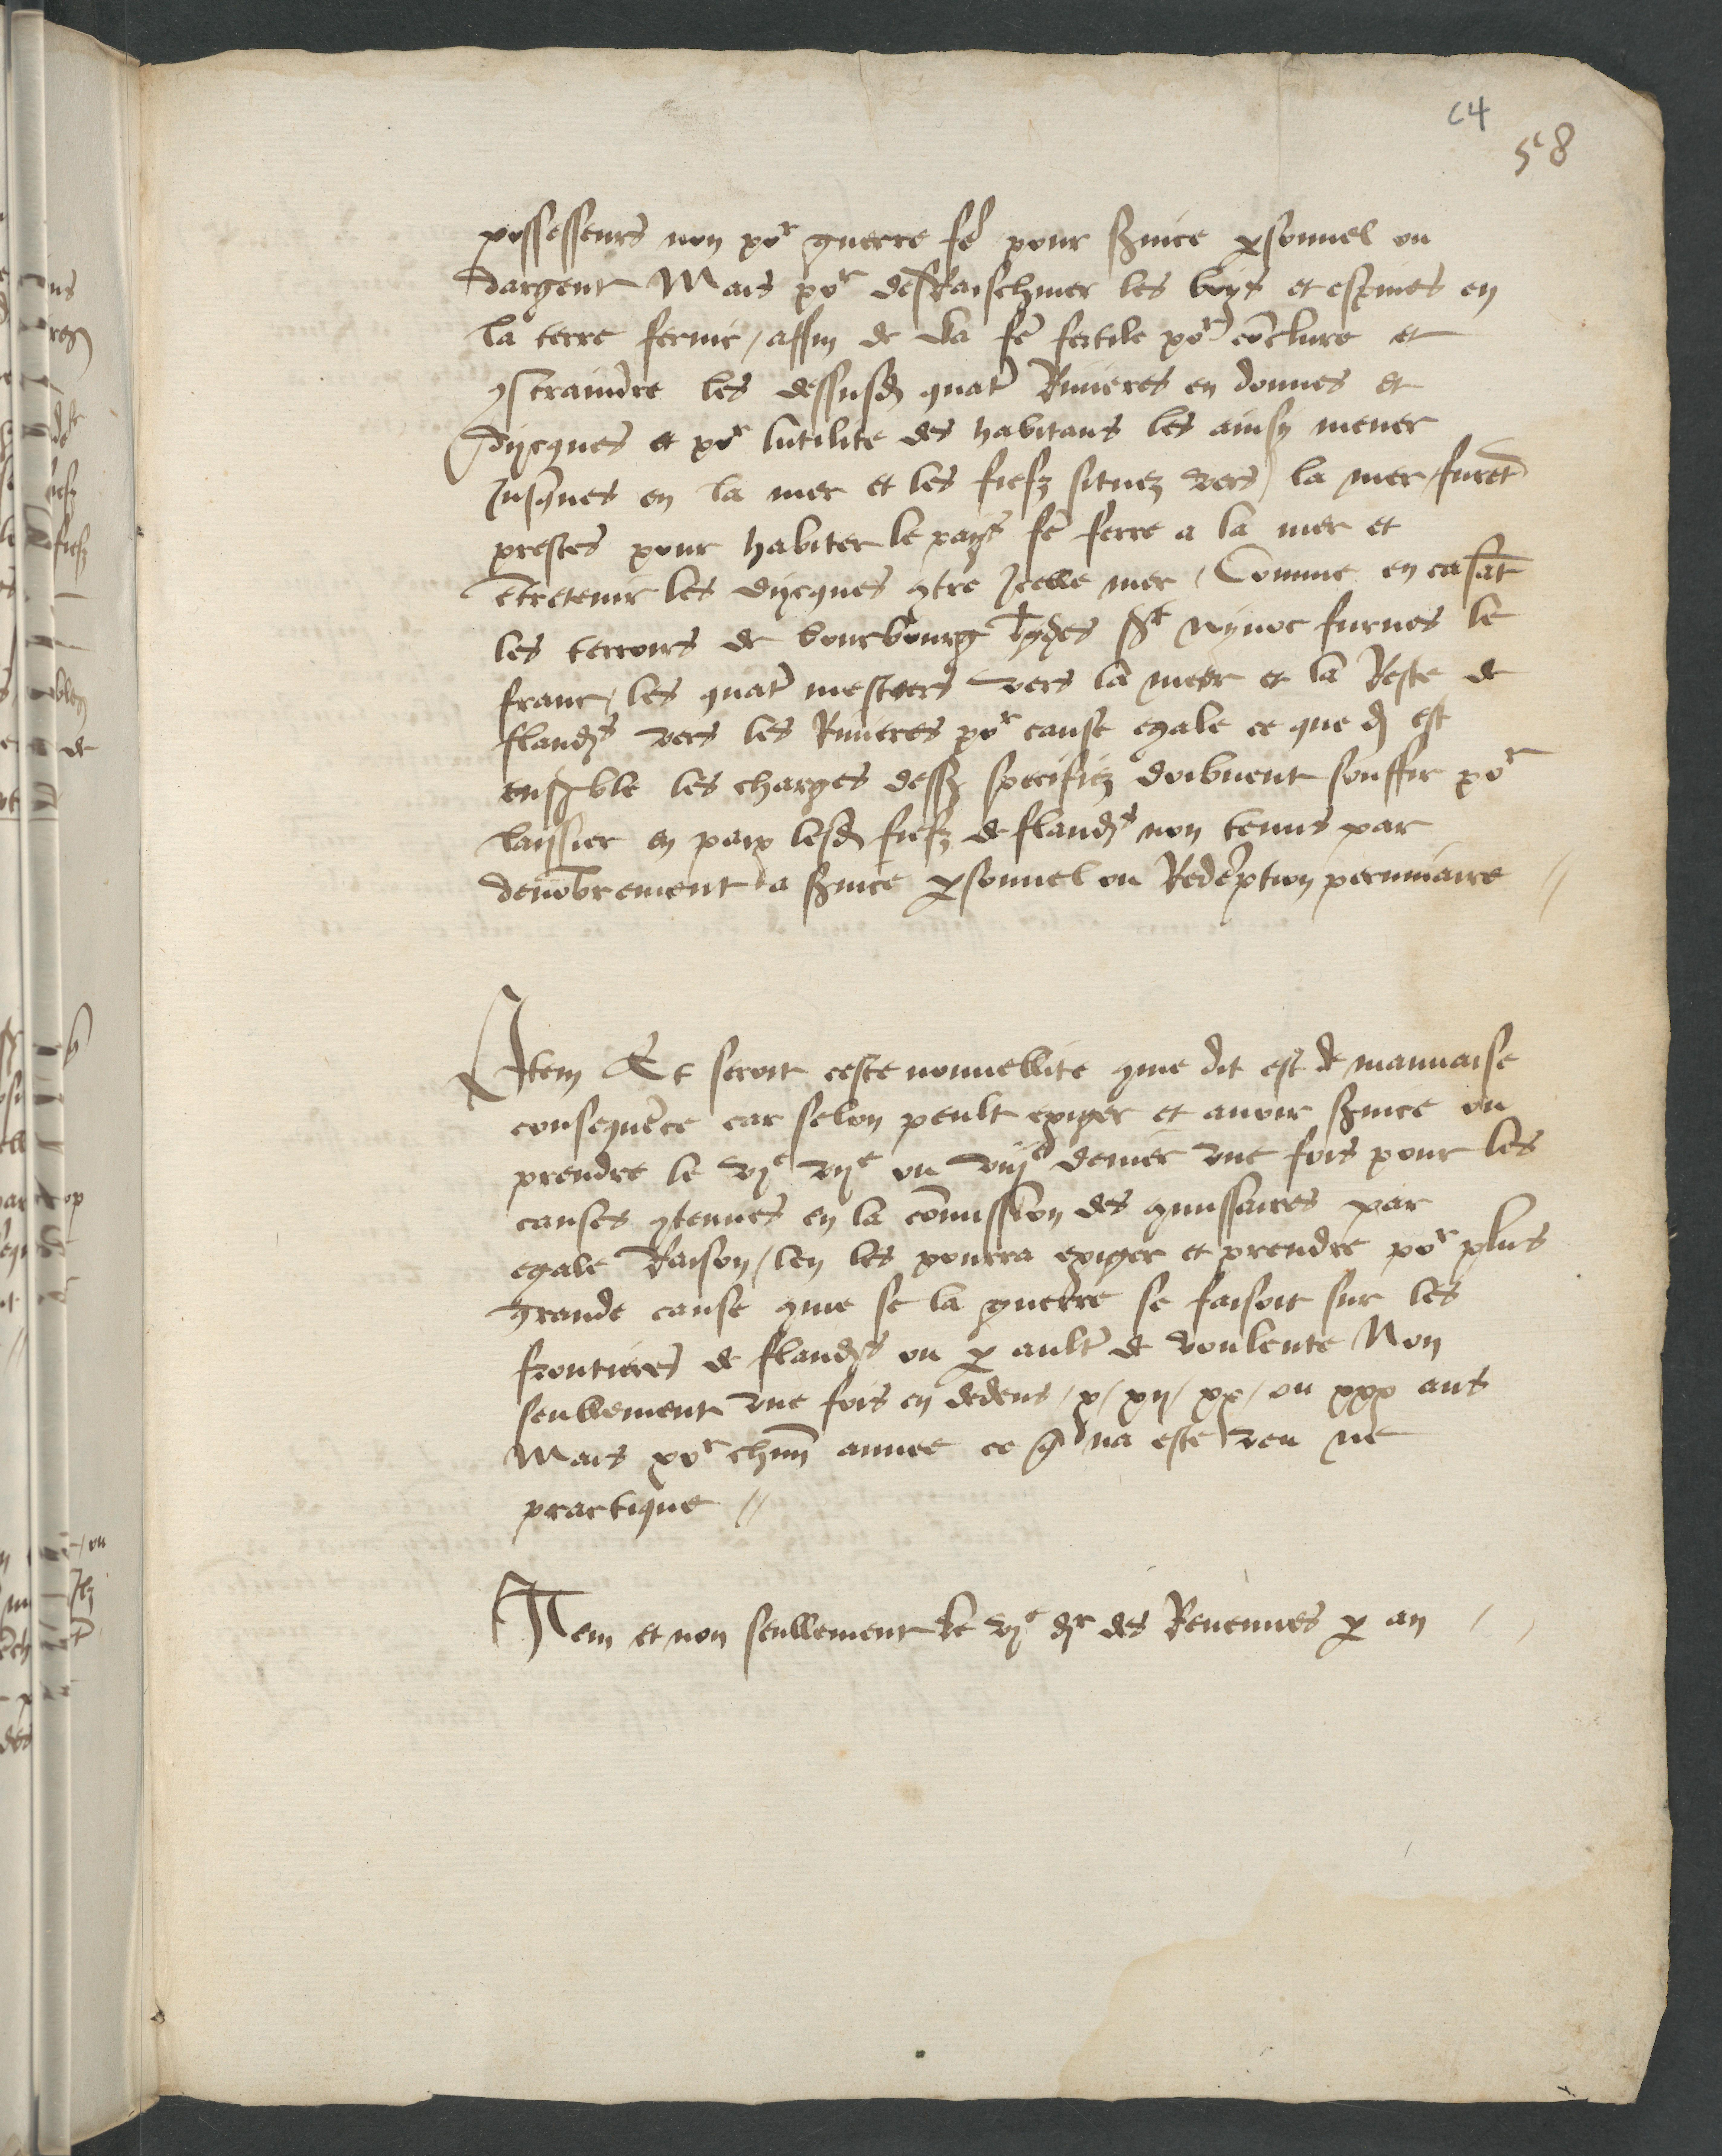 c4
58
possesseurs non por guerre fe pour svice psonnel ou
dargent Mais por desrachiner les boys et espines en
la terre ferme / affin de la fe fertile por enclure et
9straindre les dessusd quatre Rivieres en dounes et
dycques et por lutilite des habitans les ainsy mener
Jusques en la mer et les fiefz situez vers la mer furet
prestes pour habiter le pays fe serre a la mer et
etretenir les dycques 9tre Jcelle mer / Comme en casat
les terroirs de bourbourg berghes st wynoc furnes le
franc / les quatre mestiers vers la meer et la Reste de
flands vers les Rivieres por cause egale ce que d est
ensamble les charges dessz specifiez doibuent souffrir por
laissier en paix lesd fiefz de flands non tenus par
denobrement a svice psonnel ou Redeption pecuniaire //
Item Et seroit ceste nouuellite 9me dit est de mauuaise
consequece car se lon peult exiger et auoir svice ou
prendre le vje vije ou viije denier vne fois pour les
causes 9tenues en la comission des 9missaires par
egale Raison / len les pourra exiger et prendre por plus
grande cause 9me se la guerre se faisoit sur les
frontieres de flands ou p aultre de voulente Non
seullement vne fois en dedens / x / xij / xx / ou xxx ans
Mais por chun annee ce q na este veu ne
practique //
Item et non seullement le vje dr des Reuenues p an /